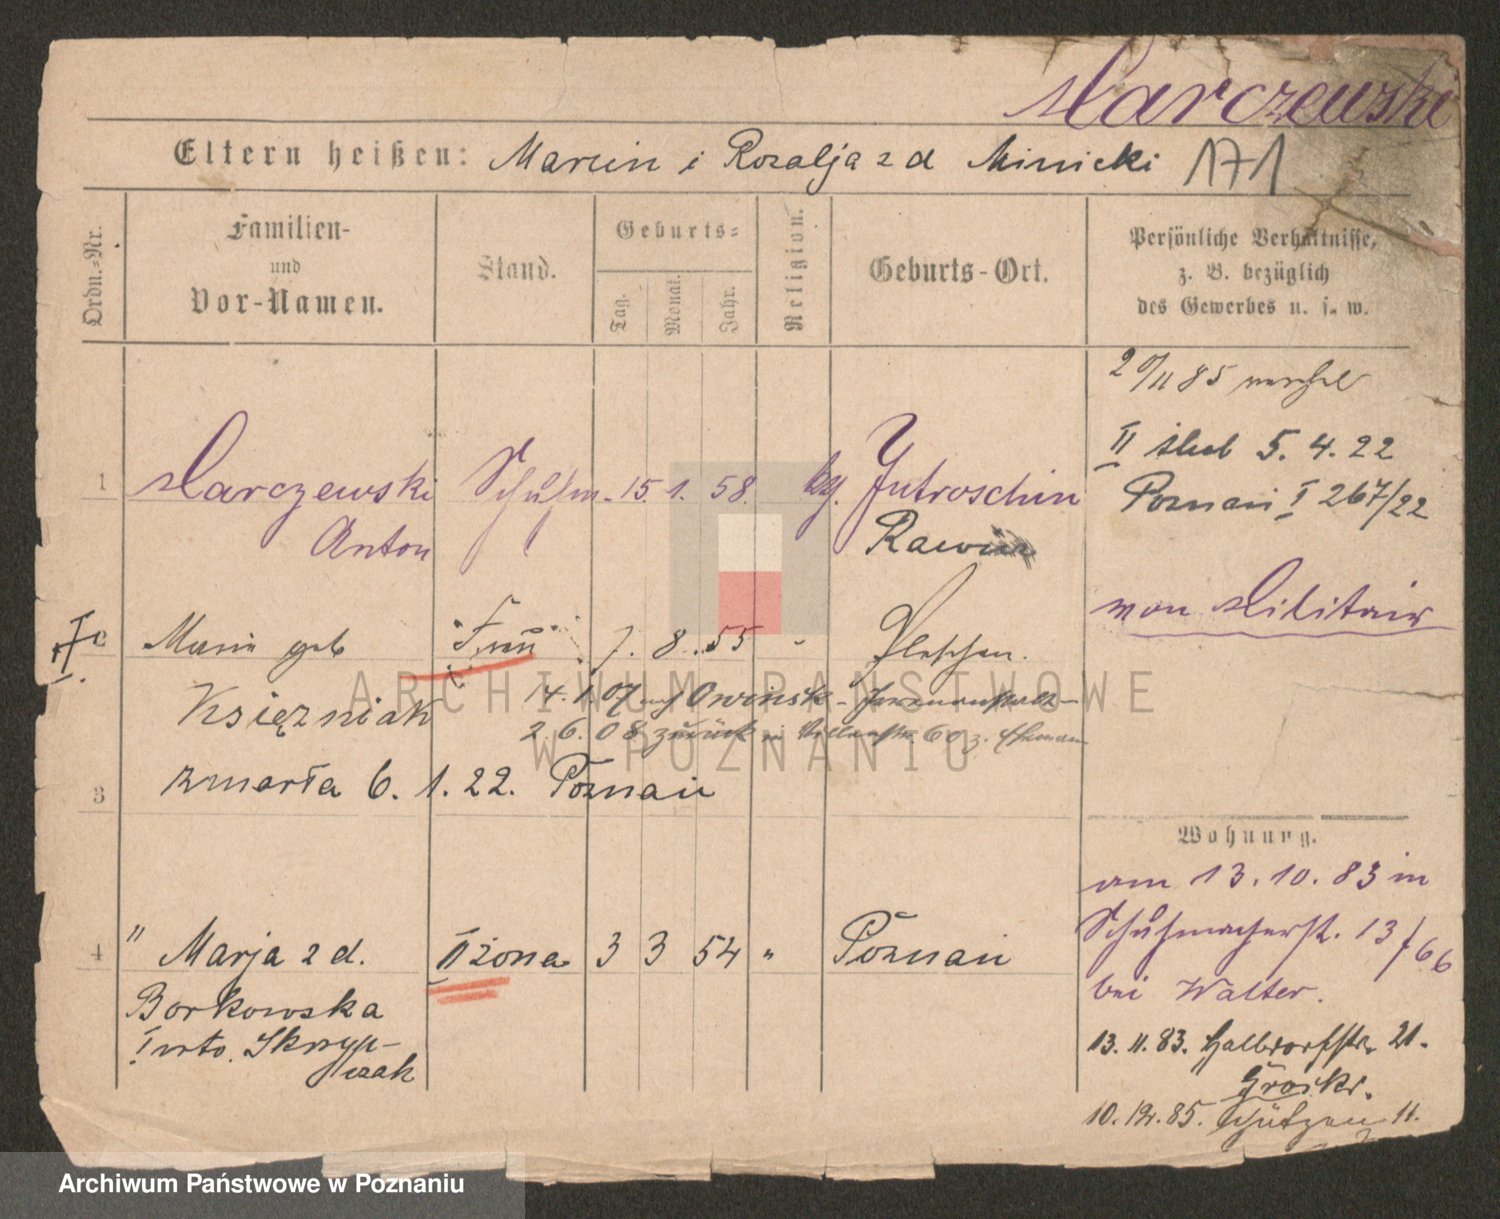 Marczewski
Eltern heißen: Marcin i Rozalja z d Minicki 171
Ordn.-Nr.
Familien-
und
Vor-Namen.
Stand.
Geburts-
Tag.
Monat.
Jahr.
Religion.
Geburts-Ort.
Persönliche Verhältnisse,
z. B. bezüglich
des Gewerbes u. s. w.
II ślub 5. 4. 22
Poznań I 267/22
von Militair
1 Marczewski Schuhm. 15. 1. 58. kg. Jutroschin
Anton Rawicz
Marie geb Frau 7. 8. 55 Pleschen.
Księżniak 14. 1. 07 nach Owinsk - Irrenanstalt-
2. 6. 08 zurück in 60 z. Ehemann
3 zmarła 6. 1. 22. Poznań
Wohnung.
am 13. 10. 83 in
Schuhmacherstr. 13/66
bei Walter.
13. 11. 83. Halbdorfstr. 21.
10. 12. 85. Schützen 11.
4 " Marja z d. II żona 3 3 54 " Poznań
Borkowska
I voto. Skrzyp-
czak
ARCHIWUM PAŃSTWOWE
W POZNANIU
Archiwum Państwowe w Poznaniu